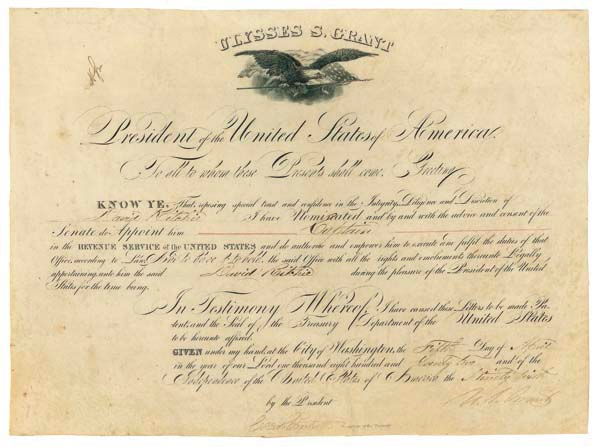 ULYSSES S. GRANT
President of the United States of America.
To all to whom these Presents shall come, Greeting:
KNOW YE, That, reposing special trust and confidence in the Integrity, Diligence and Discretion of
David Ritchie I have Nominated and by and with the advice and consent of the
Senate do Appoint him Captain
in the REVENUE SERVICE of the UNITED STATES and do authorize and empower him to execute and fulfil the duties of that
Office, according to Law: And to have & to hold the said Office with all the rights and emoluments thereunto Legally
appertaining, unto him the said David Ritchie during the pleasure of the President of the United
States for the time being.
In Testimony Whereof, I have caused these Letters to be made Pa-
tent, and the Seal of the Treasury Department of the United States
to be hereunto affixed.
GIVEN under my hand, at the City of Washington, the Fifth Day of April
in the year of our Lord one thousand eight hundred and Seventy Two and of the
Independence of the United States of America the Ninety Sixth
by the President